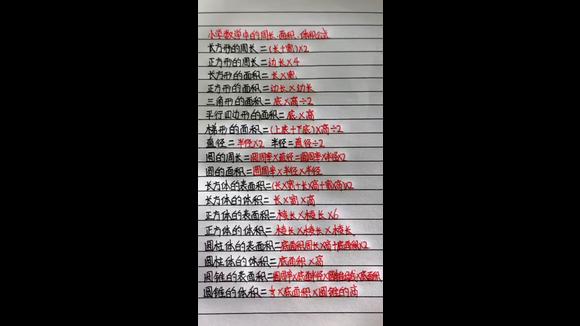 小学数学中的周长.面积.体积公式
长方形的周长=(长+宽)×2
正方形的周长=边长×4
长方形的面积=长×宽
正方形的面积=边长×边长
三角形的面积=底×高÷2
平行四边形的面积=底×高
梯形的面积=(上底+下底)×高÷2
直径=半径×2 半径=直径÷2
圆的周长=圆周率×直径=圆周率×半径×2
圆的面积=圆周率×半径×半径
长方体的表面积=(长×宽+长×高+宽×高)×2
长方体的体积=长×宽×高
正方体的表面积=棱长×棱长×6
正方体的体积=棱长×棱长×棱长
圆柱体的表面积=底面积周长×高+底面积×2
圆柱体的体积=底面积×高
圆锥的表面积=圆周率×底面半径×
圆锥的体积=⅓×底面积×圆锥的高